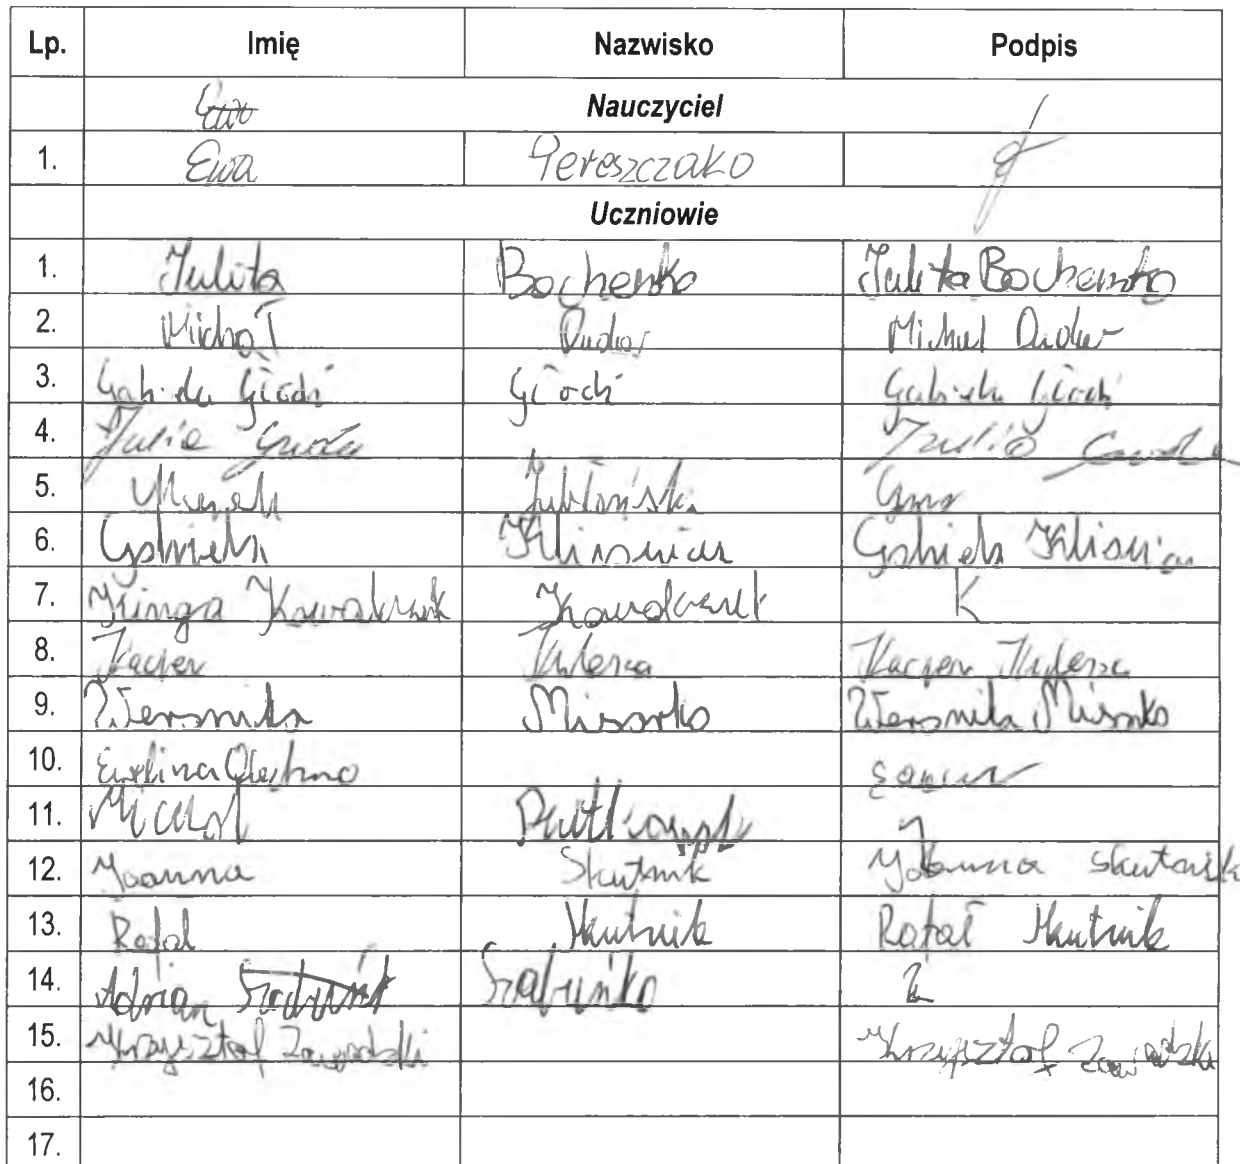 Lp. Imię Nazwisko Podpis
Nauczyciel
1. Ewa Pereszczako
Uczniowie
1. Julita Bochenko Julita Bochenko
2. Michał Dudar Michał Dudar
3. Gabriela Giodi Giodi Gabriela Giodi
4. Julia Julia
5. Jabłońsk
6. Gabriela Klisowiar Gabriela
7. Kinga Kowalczuk Kowalczuk K
8. Kacper Kulesza Kacper Kulesza
9. Weronika Misarko Weronika
10. Ewelina Olechno
11. Michał Rutkowski
12. Joanna Skutnik Joanna Skutnik
13. Rafał Skutnik Rafał Skutnik
14. Adrian Szabuńko
15. Krzysztof Zawadzki Krzysztof Zawadzki
16.
17.